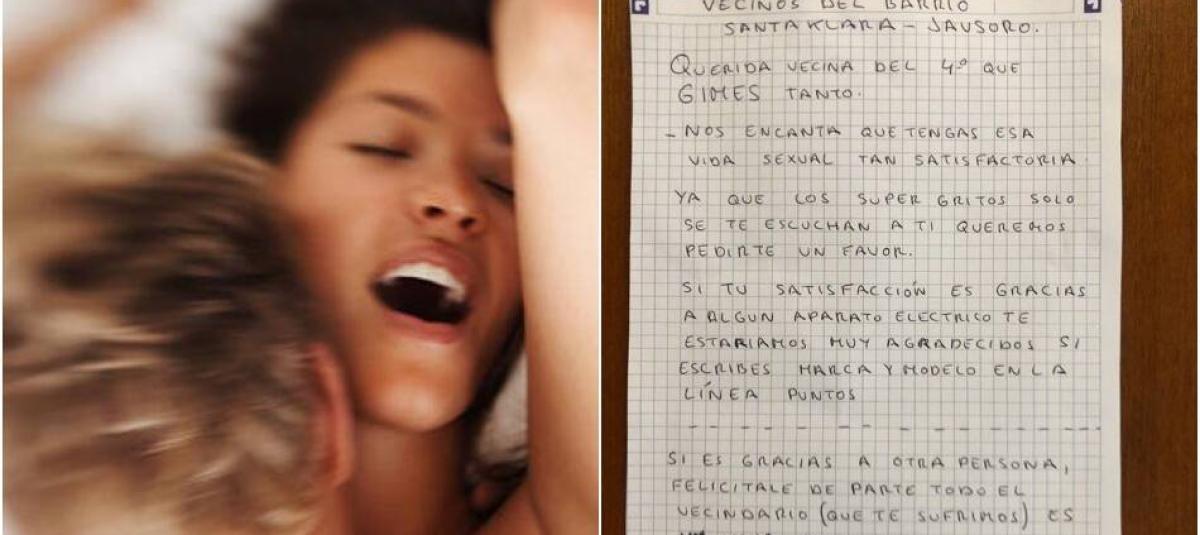 VECINOS DEL BARRIO
SANTA KLARA - JAUSORO.
QUERIDA VECINA DEL 4º QUE
GIMES TANTO.
- NOS ENCANTA QUE TENGAS ESA
VIDA SEXUAL TAN SATISFACTORIA
YA QUE LOS SUPER GRITOS SOLO
SE TE ESCUCHAN A TI QUEREMOS
PEDIRTE UN FAVOR.
SI TU SATISFACCIÓN ES GRACIAS
A ALGUN APARATO ELECTRICO TE
ESTARIAMOS MUY AGRADECIDOS SI
ESCRIBES MARCA Y MODELO EN LA
LÍNEA PUNTOS
- - - - - - - - - - - - - - - -
SI ES GRACIAS A OTRA PERSONA,
FELICITALE DE PARTE TODO EL
VECINDARIO (QUE TE SUFRIMOS) ES